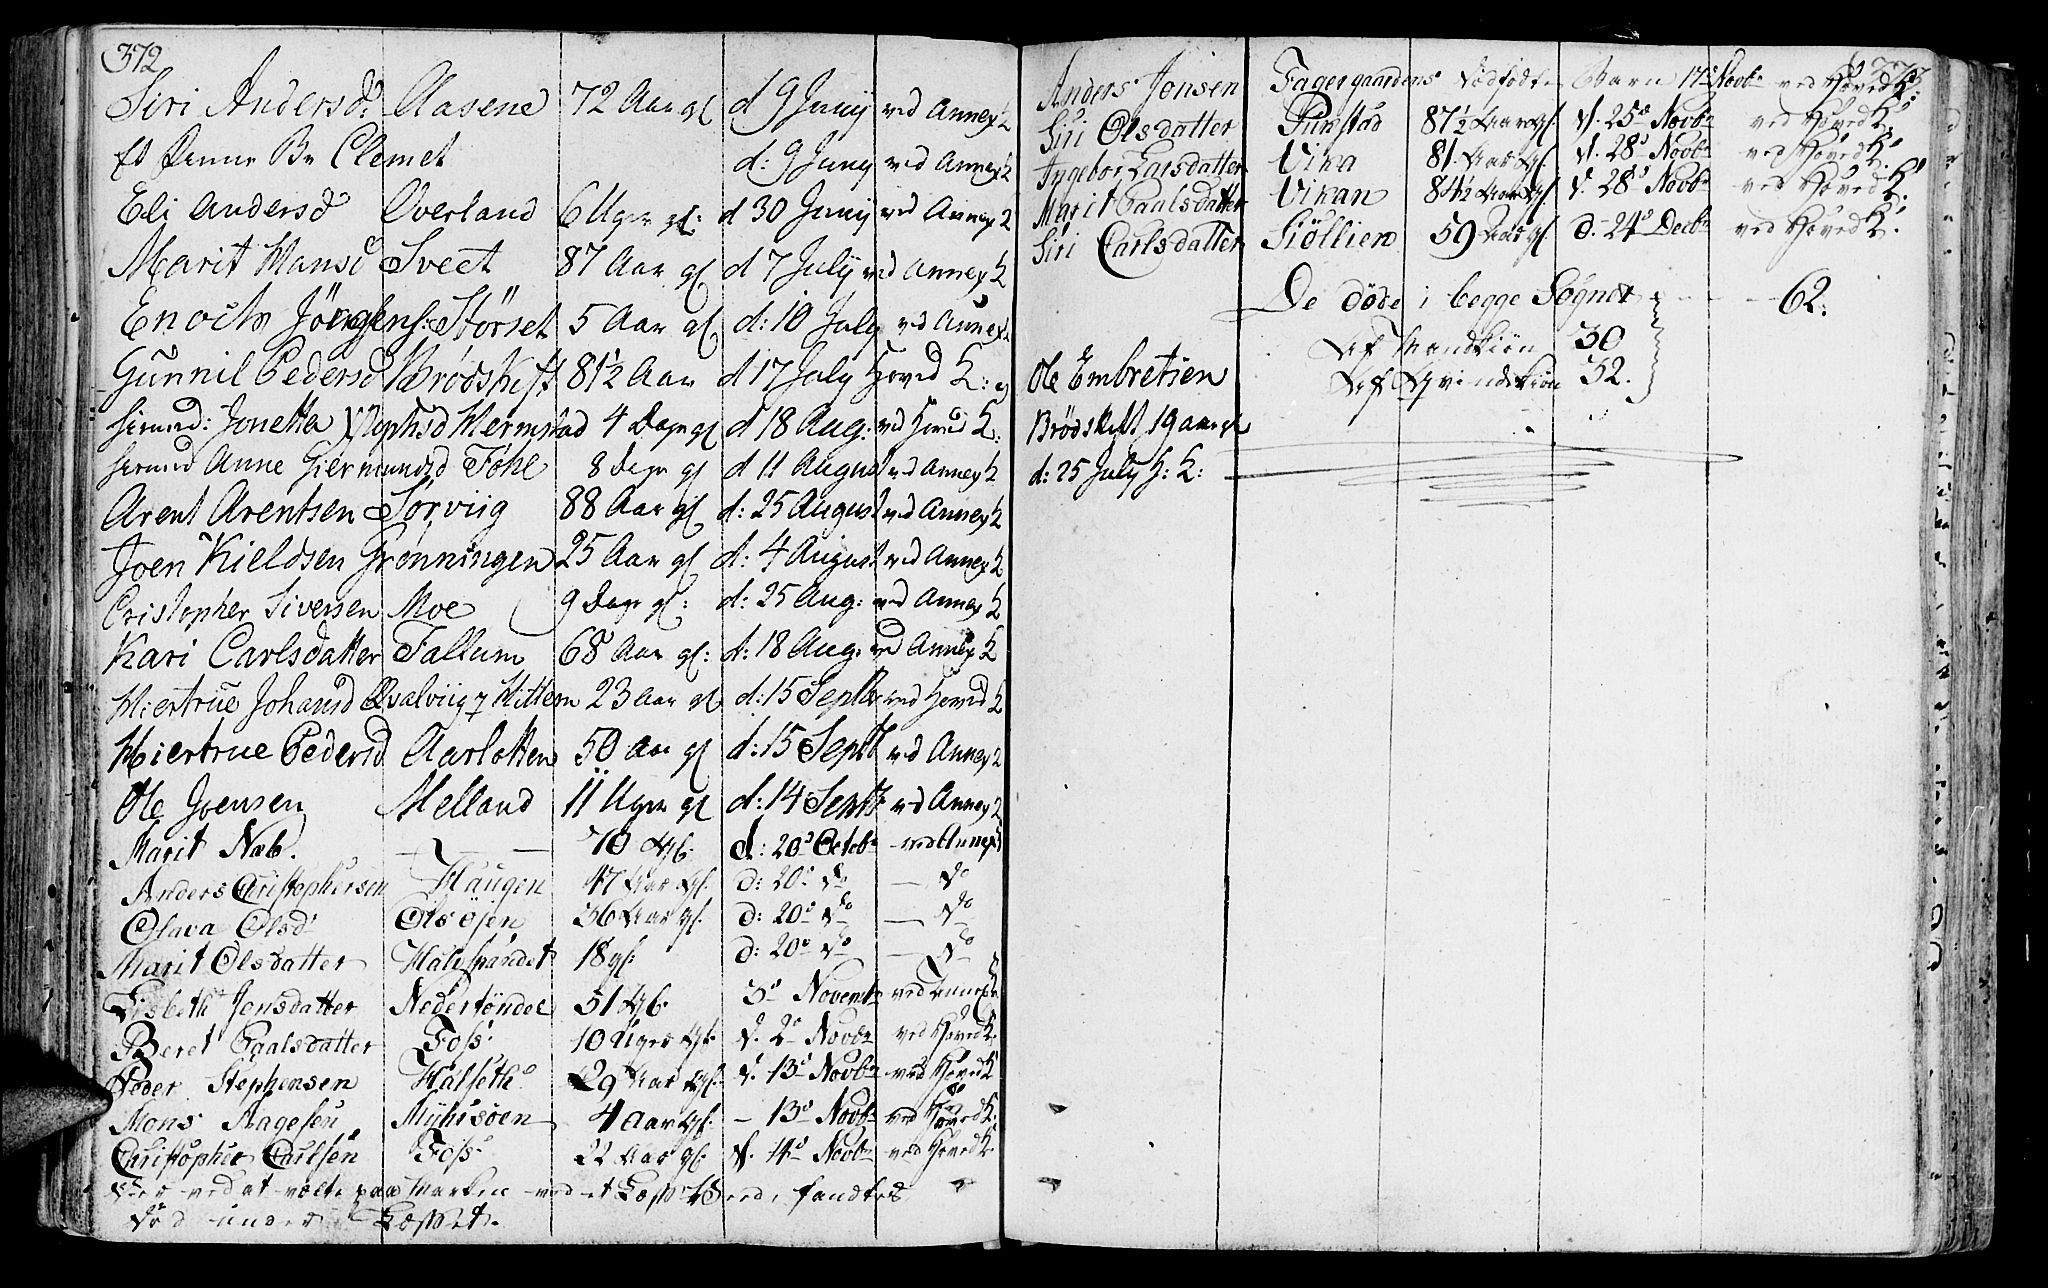 372
Siri Andersd: Aasene 72 Aar gl d 9 Junij ved Annex K
Et Daar Br Clemet d: 9 Junij ved Annex K
Eli Andersd Overland 6 Uger gl: d 30 Junij ved Annex K
Marit Hansd Sveet 87 Aar gl d 7 Julij ved Annex K
Enoch Jörgens: Störset 5 Aar gl d: 10 July ved Annex K
Gunnil Pedersd Brödskift 81½ Aar d 17 July Hoved K:
hiemd: Jonetta Hermstad 4 Dage gl d 18 Aug: ved Hoved K:
hiemd Anne Giermundsd Tohl 8 Dage gl d 11 August ved Annex K
Arent Arentsen Sorviig 88 Aar gl d: 25 August ved Annex K
Joen Kieldsen Grönningen 25 Aar gl d: 4 August ved Annex K
Cristopher Siversen Moe 9 Dage gl: d: 25 Aug: ved Annex K
Kari Carlsdatter Tallum 68 Aar gl: d: 18 Aug: ved Annex K
Hiertrue Johansd Qvalviig Hittern 23 Aar gl d: 15 Septb ved Hoved K
Hiertrue Pedersd Aarlotten 50 Aar gl d: 15 Septb ved Annex K
Ole Joensen Melland 11 Uger gl d: 14 Septb ved Annex K
Marit Næb. 70 d: 20de Octobr ved Annex
Anders Christophersen Haugen 47 Aar gl. d: 20de do — do
Olava Olsd: Olsöjen 36 Aar gl. d: 20de do — do
Marit Olsdatter Halvstandet 18 gl. d: 20de do — do
Lisbeth Jonsdatter Nedertöndel 51 3de Novembr ved Annex K
Beret Paalsdatter Foss 10 Uger gl. d. 2de Novbr ved Hoved K.
Peder Stephensen Halseth 29 Aar gl. d. 13de Novbr ved Hoved K
Mons Aagesen Myhrsöen 4 Aar gl. — 13de Novbr ved Hoved K.
Christopher Carlsen Foss 22 Aar gl. d. 14de Novbr ved Hoved K.
ved at vælte paa Marken ved et Læss fandtes
död under Læsset.
373
Anders Jonsen Fagergaardens dödfödte Barn 17de Novbr ved Hoved K:
Siri Olsdatter Pukstad 87½ Aar gl. d. 25de Novbr ved Hoved K.
Ingebor Larsdatter Vika 81 Aar gl. d. 28de Novbr ved Hoved K.
Marit Paalsdatter Vikan 84½ Aar gl. d. 28de Novbr ved Hoved K.
Siri Carlsdatter Siöllien 59 Aar gl. d. 24de Decbr ved Hoved K.
De döde i begge Sogner — 62.
Af Mandkiön 30
Af Qvindekiön 32.
Ole Embretsen
Brödskift 19 aar gl
d: 25 July H: K: